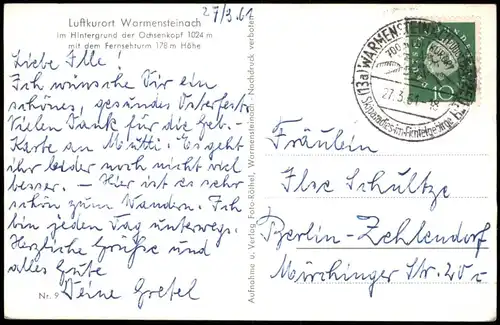 27/3.61
Luftkurort Warmensteinach
im Hintergrund der Ochsenkopf 1024 m
mit dem Fernsehturm 178 m Höhe
Liebe Ille!
Ich wünsche Dir ein
schönes, gesundes Osterfest.
Vielen Dank für die Geb.-
Karte an Mutti. Es geht
ihr leider noch nicht viel
besser. – Hier ist es sehr
schön zum Wandern. Ich
bin jeden Tag unterwegs.
Herzliche Grüße und
alles Gute
Deine Gretel
Nr. 9
Aufnahme u. Verlag Foto-Röthel, Warmensteinach - Nachdruck verboten
(13a) WARMENSTEINACH
27.3.61
Skiparadies im Fichtelgebirge
10
Fräulein
Ilse Schultze
Berlin-Zehlendorf
Mörchinger Str. 20